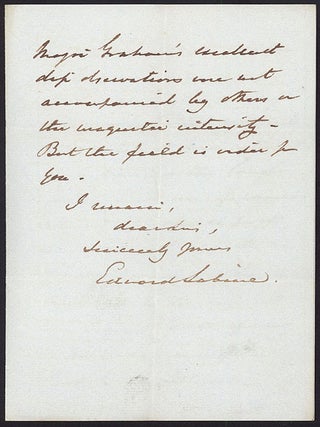 Major Graham's excellent
dip observations were not
accompanied by others on
the magnetic intensity –
But the field is wider for
you –
I remain,
dear Sir,
Sincerely yours
Edward Sabine.